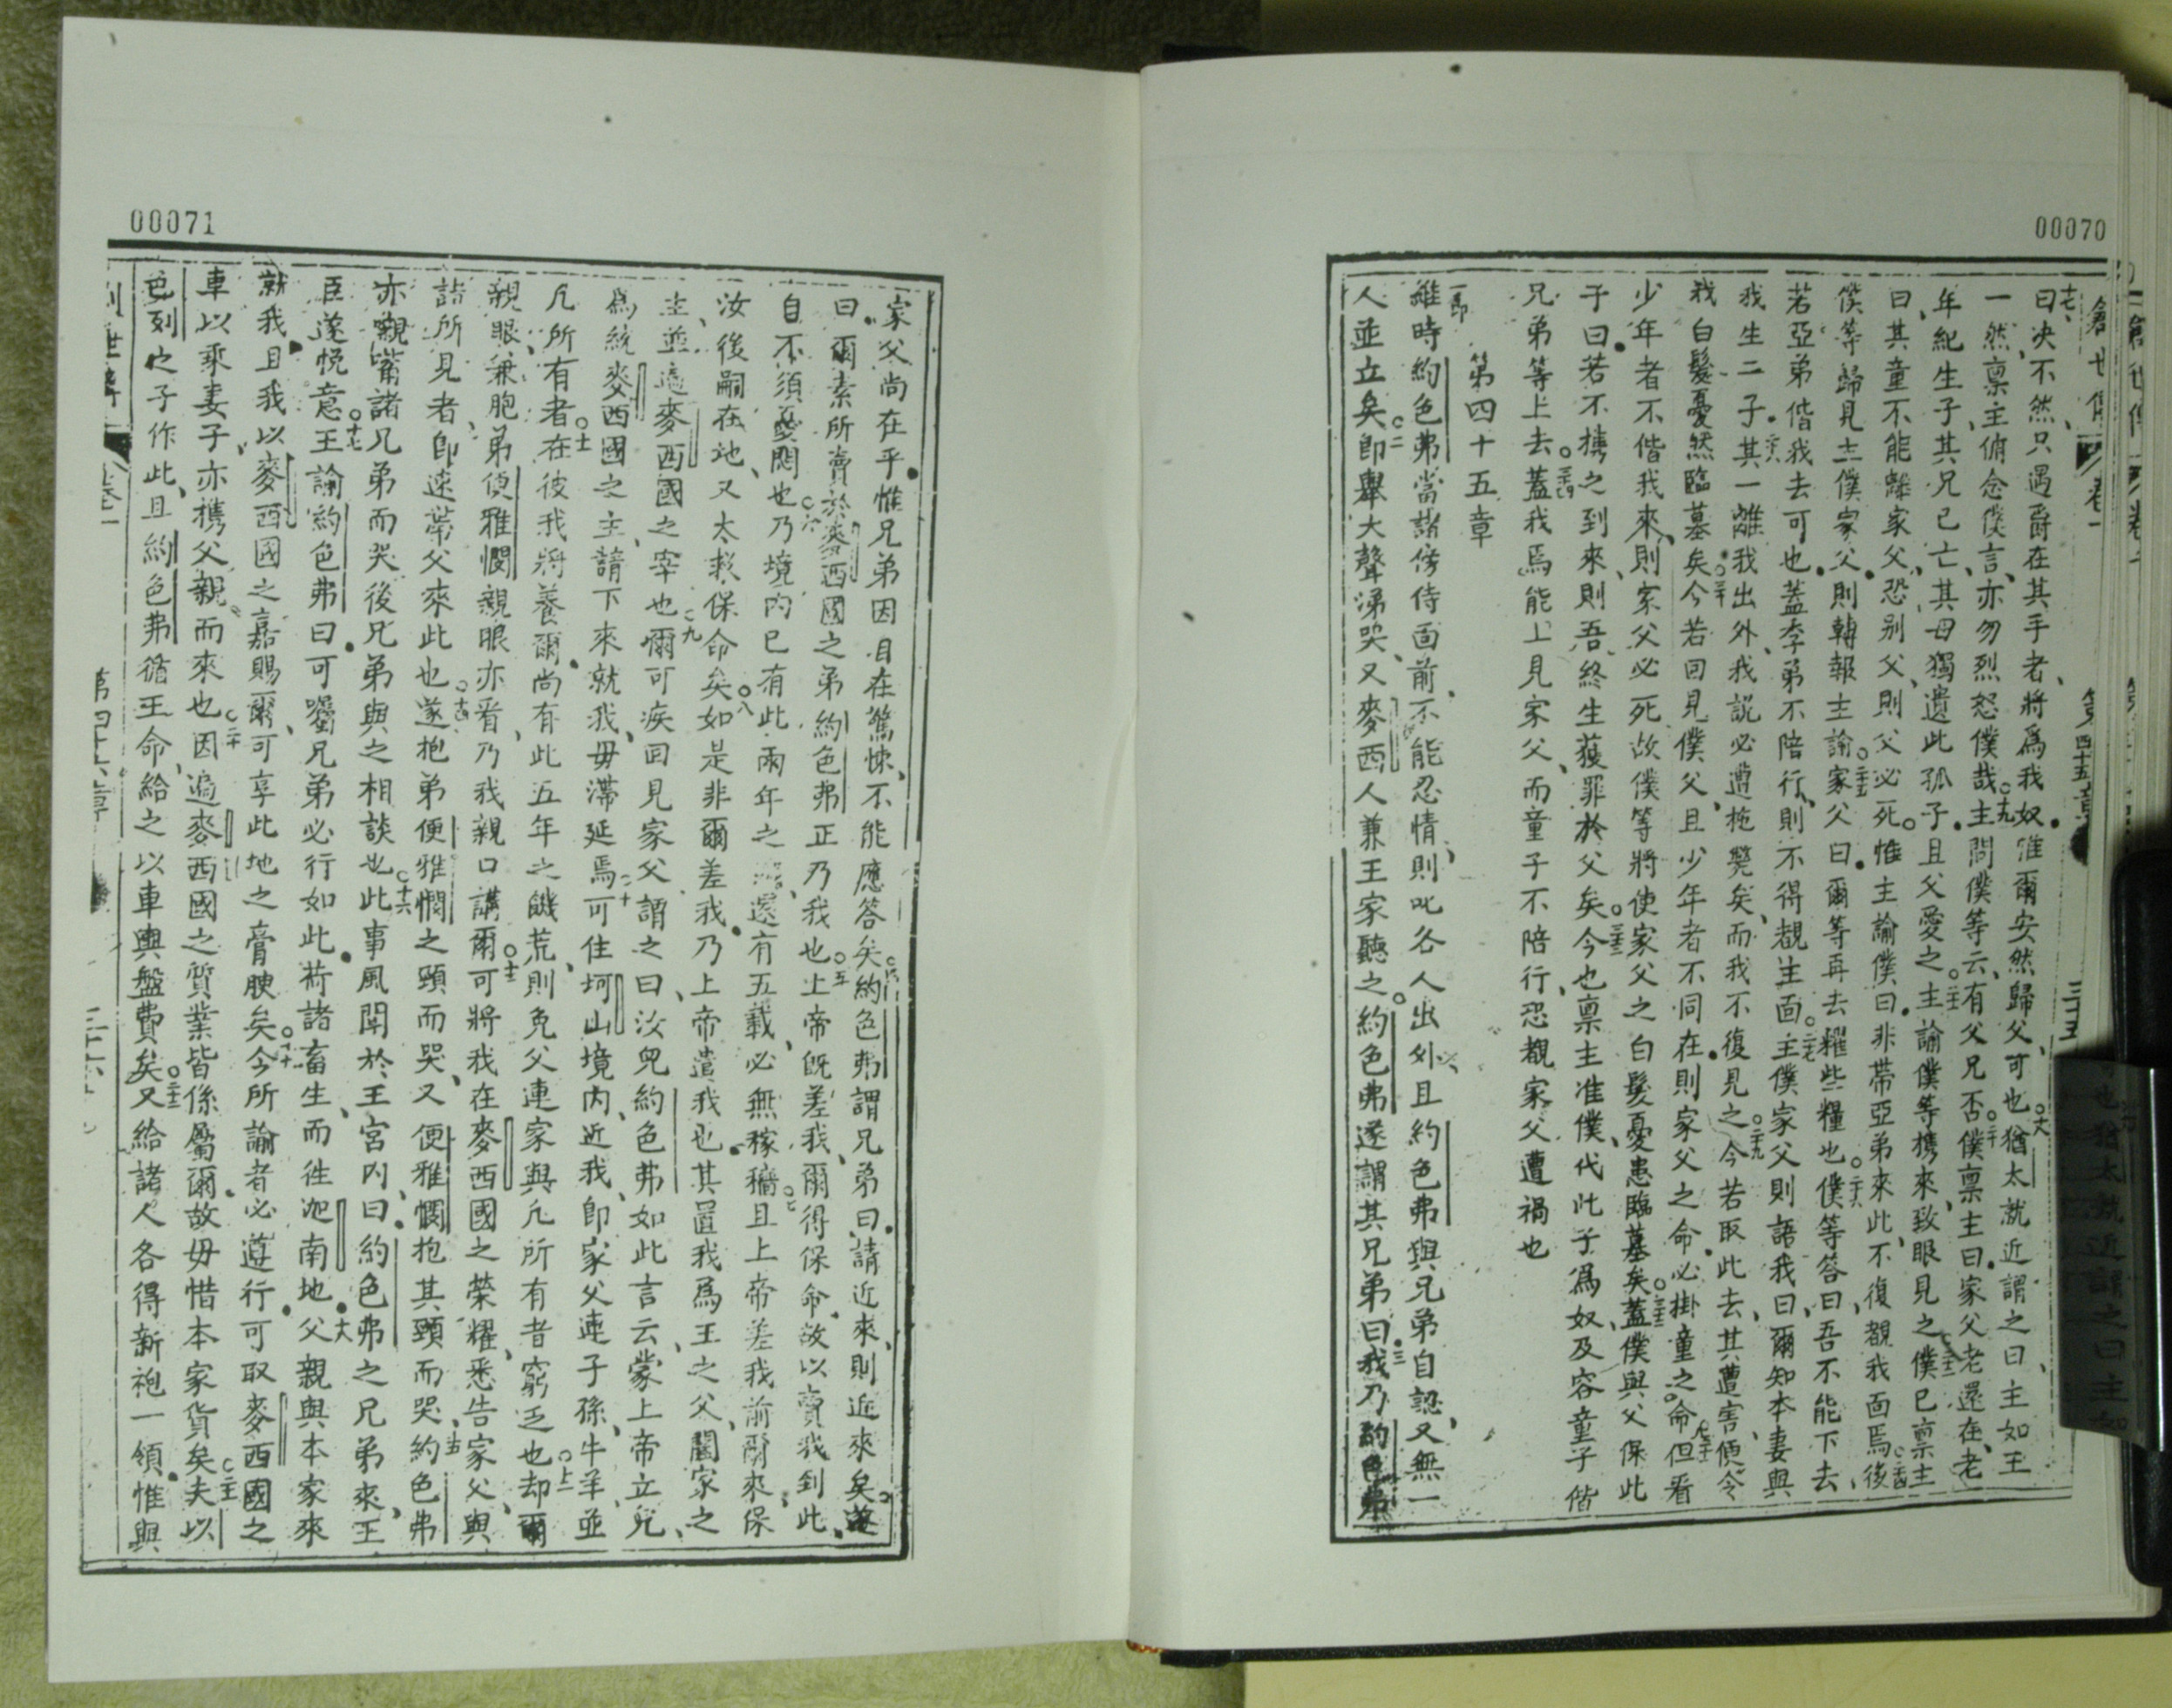 00070
創世傳 卷一 第四十五章 三十五
七曰決不然只遇爵在其手者將爲我奴惟爾安然歸父可也○六猶太就近謂之曰主如王
一然稟主俯念僕言亦勿烈怒僕哉○九主問僕等云有父兄否○二十僕稟主曰家父老還在老
年紀生子其兄已亡其母獨遺此孤子且父愛之○主諭僕等携來致眼見之僕已稟主
曰其童不能離家父恐别父則父必死○惟主諭僕曰非帶亞弟來此不復覩我面焉○二十四後
僕等歸見主僕家父則轉報主諭○二十五家父曰爾等再去糴些糧也○二十六僕等答曰吾不能下去
若亞弟偕我去可也蓋季弟不陪行則不得覩主面○二十七主僕家父則語我曰爾知本妻與
我生二子○二十八其一離我出外我説必遭拖斃矣而我不復見之○二十九今若取此去其遭害便令
我白髮憂然臨墓矣○三十今若回見僕父且少年者不同在則家父之命必掛童之命○三十一但看
少年者不偕我來則家父必死故僕等將使家父之白髮憂患臨墓矣○三十二蓋僕與父保此
子曰若不携之到來則吾終生獲罪於父矣○三十三今也稟主准僕代此子爲奴及容童子偕
兄弟等上去○三十四蓋我焉能上見家父而童子不陪行恐覩家父遭禍也
第四十五章
一節維時約色弗當諸傍侍面前不能忍情則叱各人出外且約色弗與兄弟自認又無一
人並立矣○二即舉大聲涕哭又麥西人兼王家聽之○約色弗遂謂其兄弟曰○三我乃約色弗
00071
家父尚在乎惟兄弟因目在驚悚不能應答矣○四約色弗謂兄弟曰請近來則近來矣遂
曰爾素所賣於麥西國之弟約色弗正乃我也○五上帝旣差我爾得保命故以賣我到此
自不須憂悶也○六乃境内已有此兩年之還有五載必無稼穡○七且上帝差我前爾來保
汝後嗣在地又太救保命矣○八如是非爾差我乃上帝遣我也其置我爲王之父闔家之
主並通麥西國之宰也○九爾可疾回見家父謂之曰汝兒約色弗如此言云蒙上帝立兒
爲統麥西國之主請下來就我毋滯延焉○十可住坷山境内近我即家父連子孫牛羊並
凡所有者○十一在彼我將養爾尚有此五年之饑荒則免父連家與凡所有者窮乏也○十二却爾
親眼兼胞弟便雅憫親眼亦看乃我親口講爾○十三可將我在麥西國之榮耀悉告家父與
諸所見者即速帶父來此也○十四遂抱弟便雅憫之頸而哭又便雅憫抱其頸而哭○十五約色弗
亦親嘴諸兄弟而哭後兄弟與之相談也○十六此事風聞於王宮内曰約色弗之兄弟來王
臣遂悦意○十七王諭約色弗曰可囑兄弟必行如此荷諸畜生而徃迦南地○十八父親與本家來
就我且我以麥西國之嘉賜爾可享此地之膏腴矣○十九今所諭者必遵行可取麥西國之
車以乘妻子亦携父親而來也○二十因遍麥西國之質業皆係屬爾故毋惜本家貨矣○二十一夫以
色列之子作此且約色弗循王命給之以車與盤費矣○二十二又給諸人各得新袍一領惟與
創世傳 卷一 第四十六章 三十六